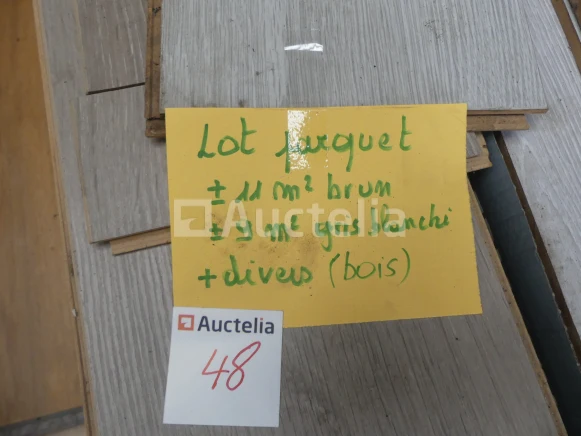 Lot parquet
± 11 m² brun
± 9 m² gris blanchi
+ divers (bois)
Auctelia
Auctelia
48